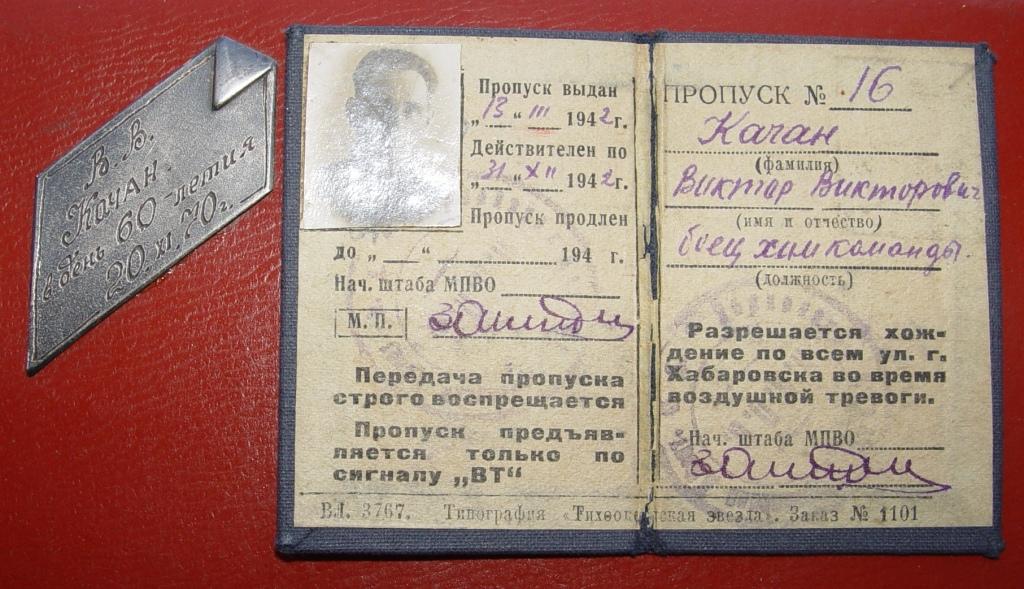 В. В.
КАЧАН
в день 60-летия
20. XI. 70г.
Пропуск выдан
„13“ III 1942г.
Действителен по
„31“ XII 1942г.
Пропуск продлен
до „ “ 194 г.
Нач. штаба МПВО
М. П.
Передача пропуска
строго воспрещается
Пропуск предъяв-
ляется только по
сигналу „ВТ“
ВЛ. 3767. Типография «Тихоокеанская звезда». Заказ № 1101
ПРОПУСК № 16
Качан
(фамилия)
Виктор Викторович
(имя и отчество)
боец химкоманды.
(должность)
Разрешается хож-
дение по всем ул. г.
Хабаровска во время
воздушной тревоги.
Нач. штаба МПВО